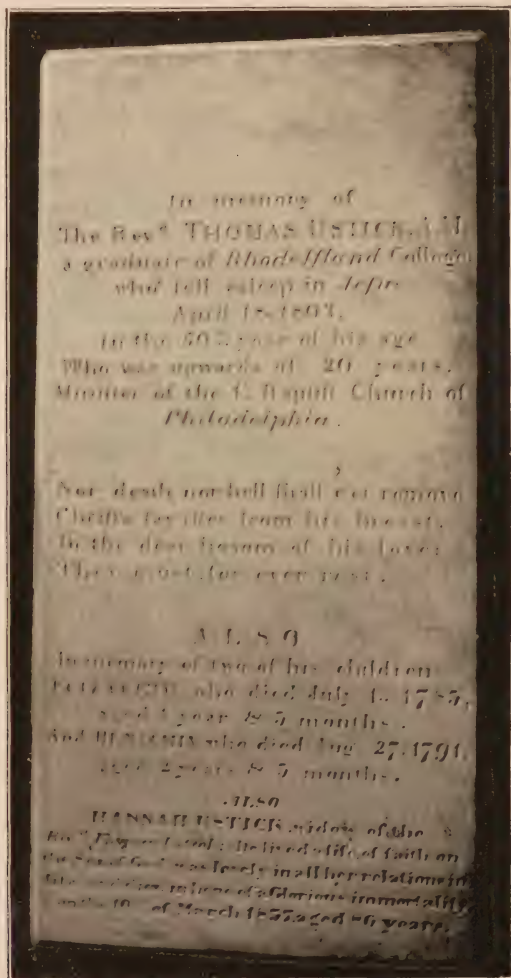 In memory of
The Revd THOMAS USTICK, A.M.
a graduate of Rhode Iſland College
who fell asleep in Jeſus
April 18, 1803,
in the 50th year of his age
Who was upwards of 20 years,
Miniſter of the Baptiſt Church of
Philadelphia.
Nor death nor hell ſhall e'er remove
from his breaſt,
In the dear boſom of his love
They muſt for ever reſt.
ALSO
in memory of two of his children
who died July 1785,
aged 1 year & 5 months.
And BENJAMIN who died Aug. 27, 1791,
aged 2 years & 5 months.
ALSO
HANNAH USTICK widow of the
Revd lived a life of faith on
the Son of God was lovely in all her relations in
life in hope of a Glorious immortality
on the of March 1837 aged 86 years.